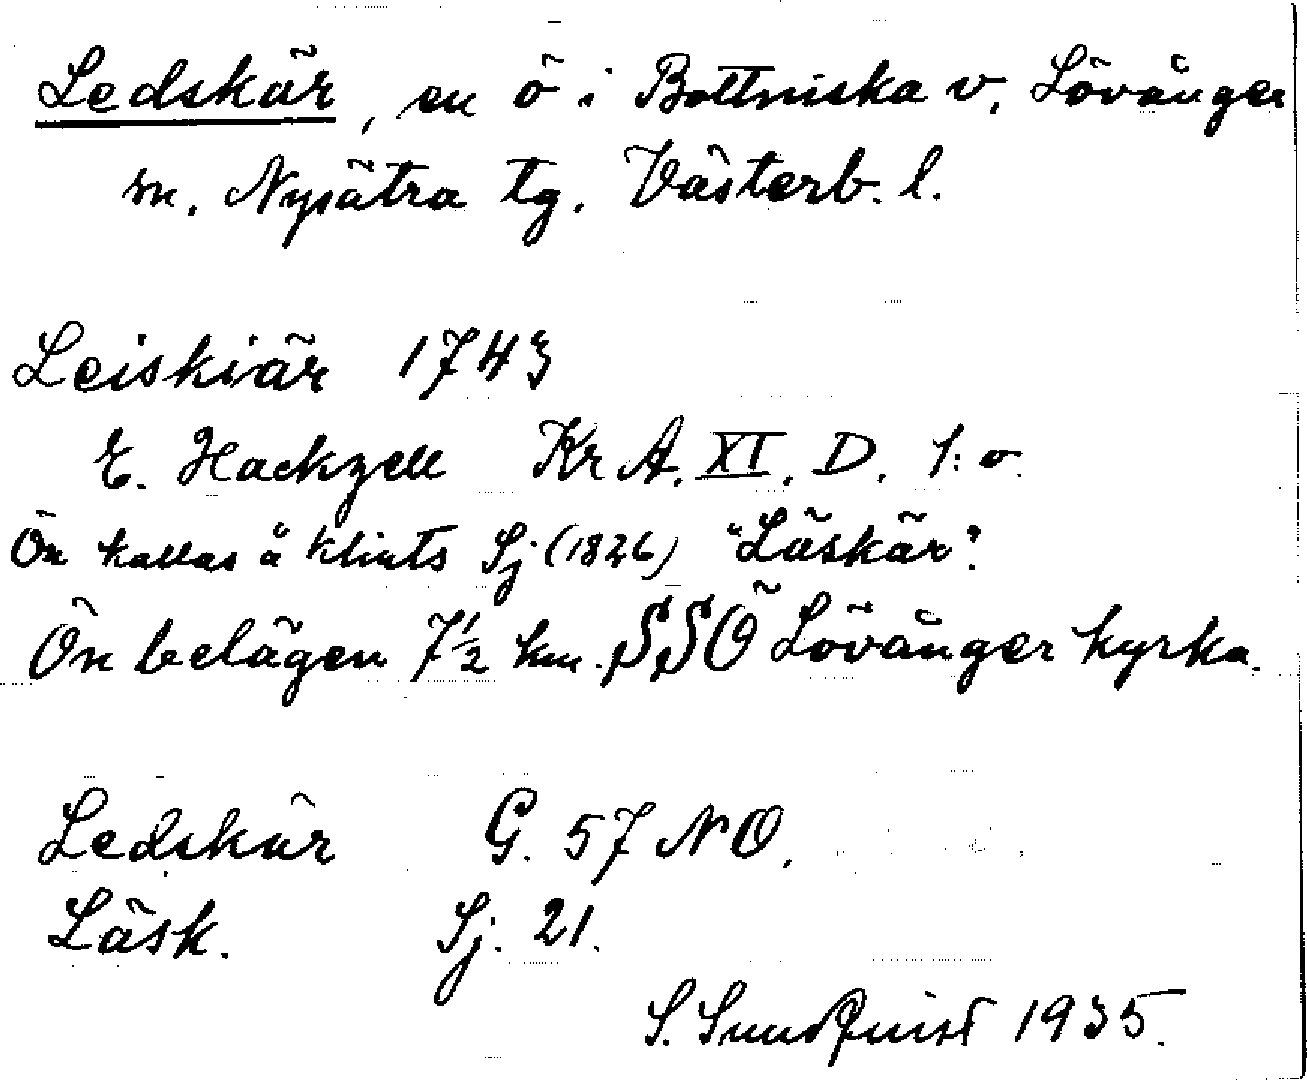 Ledskär, en ö i Bottniska v. Lövånger
sn. Nysätra tg. Västerb. l.
Leiskiär 1743
E. Hackzell Kr A. XI. D. 1: a.
Ön kallas å Klints Sj (1826) "Läskär".
Ön belägen 7½ km. SSÖ Lövånger kyrka.
Ledskär G. 57 NO.
Läsk. Sj. 21.
S. Sundquist 1935.